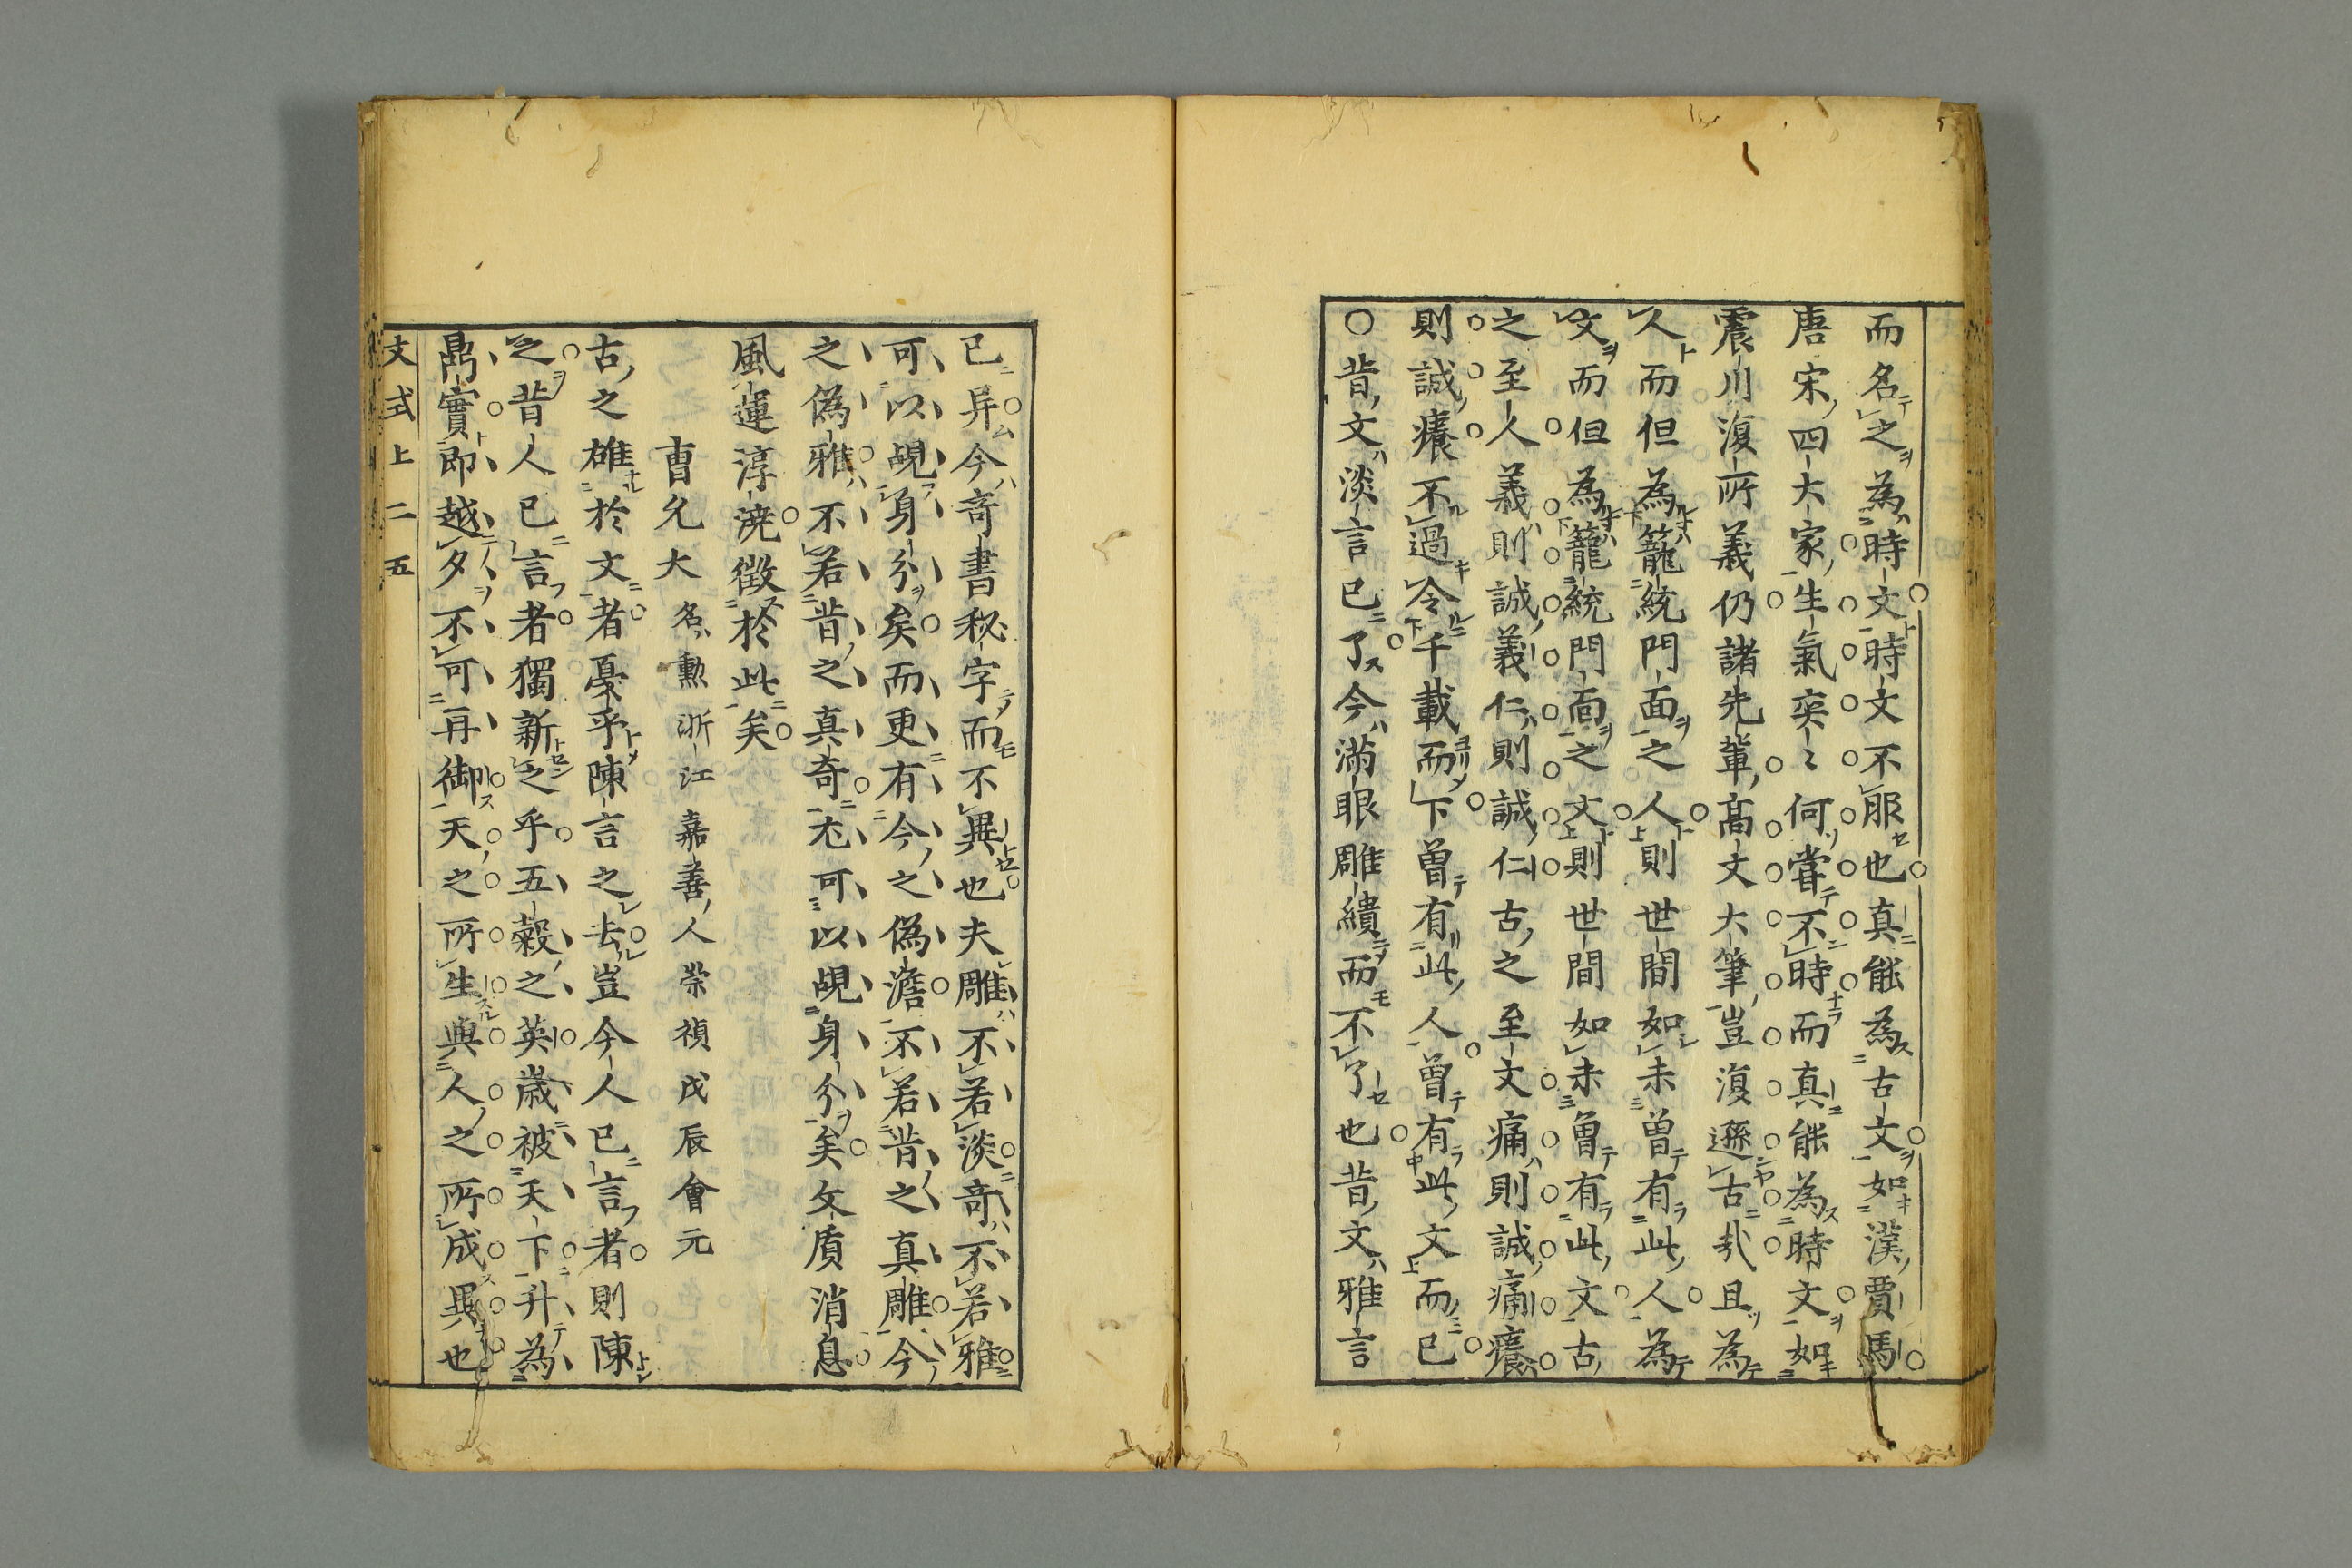 而名之為時文時文不服也真能為古文如漢賈馬
唐宋四大家生氣奕〻何嘗不時而真能為時文如
震川復所義仍諸先輩高文大筆豈復遜古哉且為
人而但為籠統門面之人則世間如未曾有此人為
文而但為籠統門面之文則世間如未曾有此文古
之至人義則誠義仁則誠仁古之至文痛則誠痛癢
則誠癢不過令千載而下曾有此人曾有此文而已
○昔文淡言已了今滿眼雕繢而不了也昔文雅言
已异今奇書秘字而不異也夫雕不若淡奇不若雅
可以覘身分矣而更有今之偽澹不若昔之真雕今
之偽雅不若昔之真奇尤可以覘身分矣文质消息
風運淳澆徵於此矣
曹允大名勲浙江嘉善人崇禎戊辰會元
古之雄於文者憂乎陳言之去豈今人已言者則陳
之昔人已言者獨新之乎五穀之英歳被天下升為
鼎實即越夕不可再御天之所生與人之所成異也
文式上二五